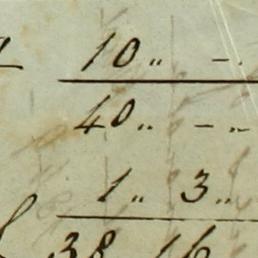 10 " -
40 " - "
1 " 3 "
38 16